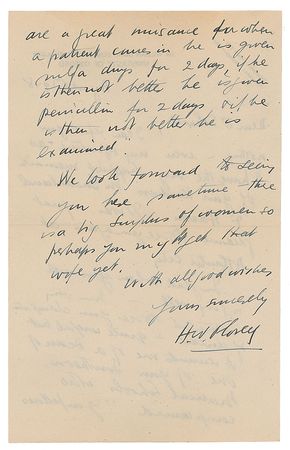 are a great nuisance for when
a patient comes in he is given
sulfa drugs for 2 days, if he
is then not better he is given
penicillin for 2 days & if he
is then not better he is
examined!
We look forward to seeing
you here sometime – there
is a big surplus of women so
perhaps you may get that
wife yet.
With all good wishes
Yours sincerely
H.W. Florey